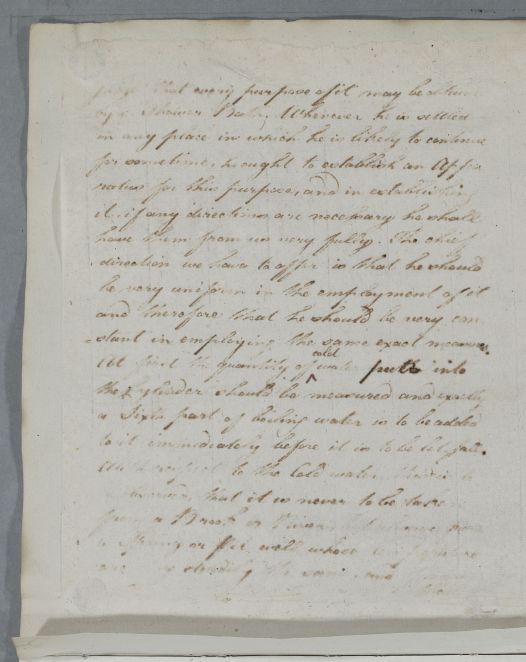 that every purpose of it may be
by a Shower Bath, Whenever he is settled
in any place in which he is likely to continue
for sometime, he ought to establish an Appa
ratus for this purpose, and in establishing
it, if any directions are necessary he shall
have them from us very fully. The chief
direction we have to offer is that he should
be very uniform in the employment of it
and therefore that he should be very con
=stant in employing the same exact measure.
At first the quantity of cold water put into
the Cylinder should be measured and exactly
a Sixth part of boiling water is to be added
to it immediately before it is to be let fall.
With respect to the Cold water,
that it is never to be taken
from a Brook or River,
a Spring or Pit well whose
are the same, and